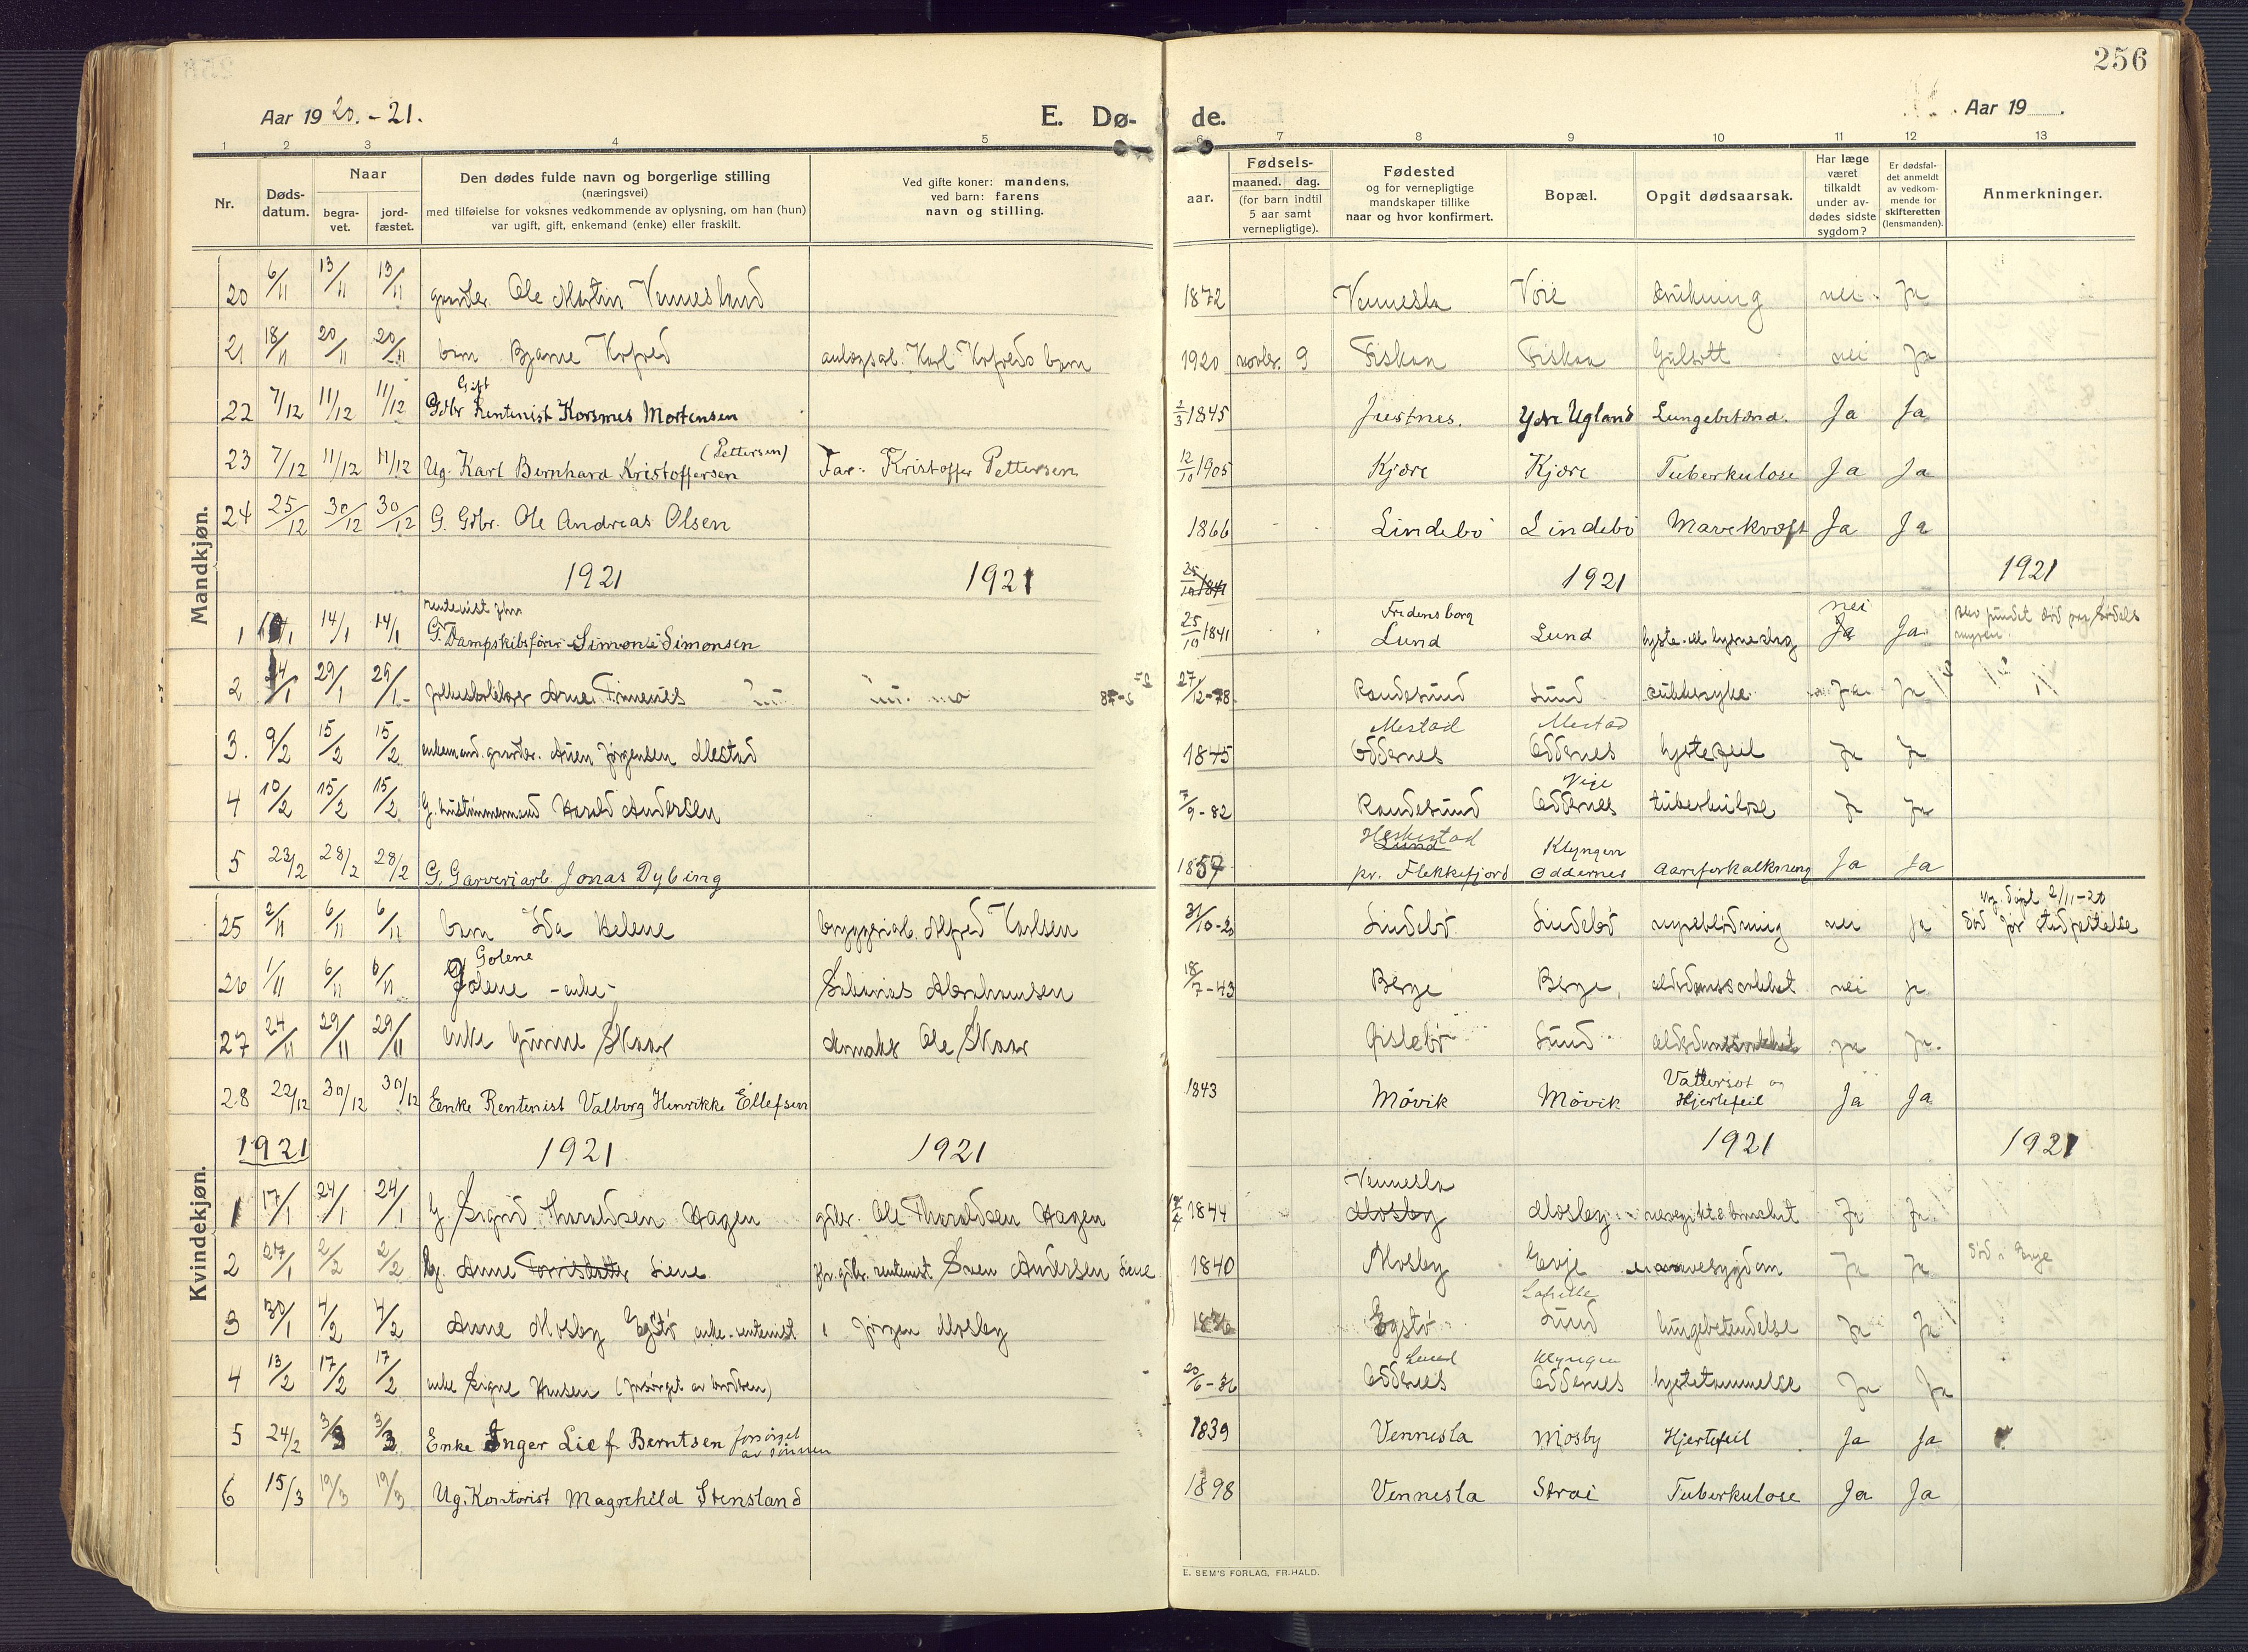 256
Aar 19 20. - 21.
E. Dø-
de.
Aar 19
1 2 3 4 5 6 7 8 9 10 11 12 13
Nr.
Døds-datum.
Naar
begra-vet.
jord-fæstet.
Den dødes fulde navn og borgerlige stilling
(næringsvei)
med tilføielse for voksnes vedkommende av oplysning, om han (hun)
var ugift, gift, enkemand (enke) eller fraskilt.
Ved gifte koner: mandens,
ved barn: farens
navn og stilling.
Fødsels-
aar.
maaned. dag.
(for barn indtil
5 aar samt
vernepligtige).
Fødested
og for vernepligtige
mandskaper tillike
naar og hvor konfirmert.
Bopæl.
Opgit dødsaarsak.
Har læge
været
tilkaldt
under av-
dødes sidste
sygdom?
Er dødsfal-
det anmeldt
av vedkom-
mende for
skifteretten
(lensmanden).
Anmerkninger.
Mandkjøn.
20 6/11 13/11 13/11 Ole Martin Vennesland 1872 Vennesla Voie drukning nei. Ja
21 18/11 20/11 20/11 barn Bjarne Kofred Karl Kofreds barn 1920 novbr. 9 Fiskaa Fiskaa Gulsott nei Ja
Gift
22 7/12 11/12 11/12 Gdbr Rentenist Korsmus Mortensen 2/3 1845 Justnes. Ytre Ugland Lungebetænd. Ja Ja
(Pettersen)
23 7/12 11/12 11/12 Ug. Karl Bernhard Kristoffersen Far: Kristoffer Pettersen 12/10 1905 Kjøre Kjøre Tuberkulose Ja Ja
24 25/12 30/12 30/12 G. Gdbr. Ole Andreas Olsen 1866 Lindebø Lindebø Mavekræft Ja Ja
1921 1921 25/10 1841 1921 1921
rentenist Fredensborg nei
1 14/1 14/1 G. Dampskibsfører Simon Simonsen 25/10 1841 Lund Lund hjerte. el. hjerneslag Ja Ja blev fundet død paa Sødals myren
2 24/1 29/1 29/1 Arne Finnenes 27/12-78 Randesund Lund sukkersyke Ja Ja
Mestad Mestad
3. 9/2 15/2 15/2 enkemand. gaardbr. Auen Jørgensen Mestad 1845 Oddernes Oddernes hjertefeil Ja Ja
Veje
4 10/2 15/2 15/2 G. hustømmermand Harald Andersen 7/9-82 Randesund Oddernes tuberkulose Ja Ja
Heskestad Lund Klyngen
5 23/2 28/2 28/2 G. Garveriarb. Jonas Dybing 1857 pr. Flekkefjord Oddernes Aareforkalkning Ja Ja
Kvindekjøn.
25 2/11 6/11 6/11 barn Ida Helene bryggeriarb. Alfred Karlsen 31/10-20 Lindebø Lindebø nyreblødning nei Ja død før stadfæstelse
Golene
26 1/11 6/11 6/11 Jolene - enke - Abrahamsen 18/7-43 Berge Berge, alderdomssvakhet nei Ja
27 24/11 29/11 29/11 enke Gurine Skaar Ole Skaar Øislebø Lund alderdomssvakhet Ja Ja.
28 22/12 30/12 30/12 Enke Rentenist Valborg Henrikke Ellefsen 1843 Møvik Møvik Vattersot og Hjertefeil Ja Ja
1921 1921 1921 1921 1921
Vennesla
1 17/1 24/1 24/1 G. Sigrid Tharaldsen Hagen gdbr. Ole Tharaldsen Hagen 1844 Mosby Mosby Ja Ja
2 27/1 2/2 2/2 G. Anne Liene fhv. gdbr. rentenist Søren Andersen Liene 1840 Mosby Evje mavesygdom Ja Ja død i Evje
3 30/1 4/2 4/2 Anne Mosby Egstø enke - rentenist Jørgen Mosby Egstø Lund lungebetændelse Ja Ja
Lund Klyngen
4 13/2 17/2 17/2 enke Signe Hansen (forsørget av brødrene) 20/6-36 Oddernes Oddernes hjertelammelse Ja Ja
5 24/2 3/3 3/3 Enke Inger Lie f. Berntsen forsørget av sønnen 1839 Vennesla Mosby Hjertefeil Ja Ja
6 15/3 19/3 19/3 Ug. Kontorist Magnhild Stensland 1898 Vennesla Strai Tuberkulose Ja Ja
E. SEM'S FORLAG, FR.HALD.